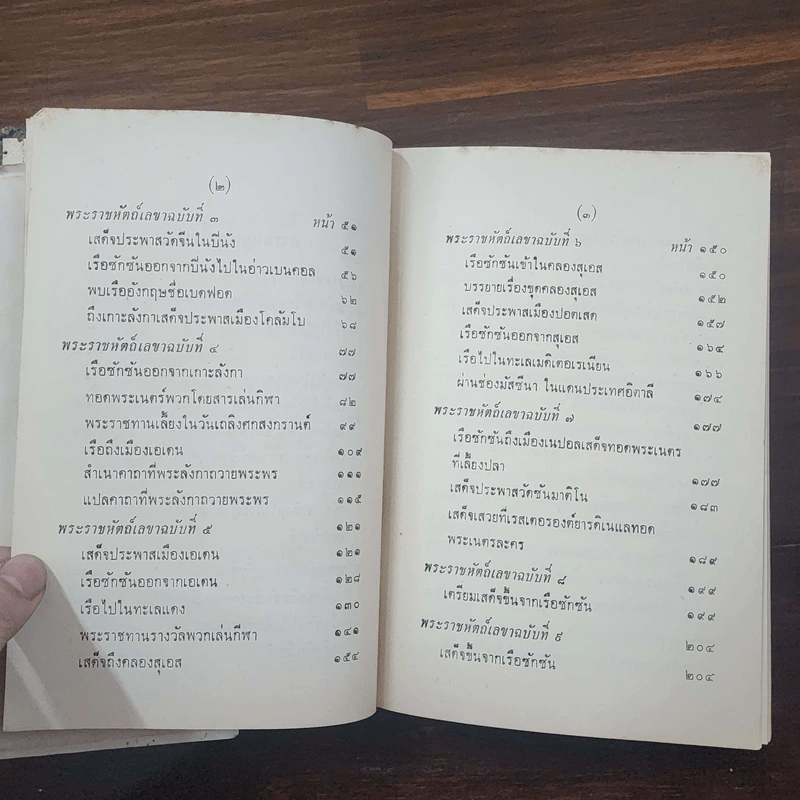 (๒)
พระราชหัตถ์เลขาฉบับที่ ๓ หน้า ๕๑
เสด็จประพาสวัดจีนในบี่นัง ๕๑
เรือซักซันออกจากบี่นังไปในอ่าวเบนคอล ๕๖
พบเรืออังกฤษชื่อเบดฟอด ๖๒
ถึงเกาะลังกาเสด็จประพาสเมืองโคลัมโบ ๖๘
พระราชหัตถ์เลขาฉบับที่ ๔ ๗๗
เรือซักซันออกจากเกาะลังกา ๗๗
ทอดพระเนตร์พวกโดยสารเล่นกิฬา ๘๒
พระราชทานเลี้ยงในวันเถลิงศกสงกรานต์ ๙๙
เรือถึงเมืองเอเดน ๑๐๙
สำเนาคาถาที่พระลังกาถวายพระพร ๑๑๑
แปลคาถาที่พระลังกาถวายพระพร ๑๑๕
พระราชหัตถ์เลขาฉบับที่ ๕ ๑๒๑
เสด็จประพาสเมืองเอเดน ๑๒๑
เรือซักซันออกจากเอเดน ๑๒๘
เรือไปในทะเลแดง ๑๓๐
พระราชทานรางวัลพวกเล่นกีฬา ๑๔๑
เสด็จถึงคลองสุเอส ๑๕๔
(๓)
พระราชหัตถ์เลขาฉบับที่ ๖ หน้า ๑๕๐
เรือซักซันเข้าในคลองสุเอส ๑๕๐
บรรยายเรื่องขุดคลองสุเอส ๑๕๒
เสด็จประพาสเมืองปอตเสด ๑๕๗
เรือซักซันออกจากสุเอส ๑๖๔
เรือไปในทะเลเมดิเตอเรเนียน ๑๖๖
ผ่านช่องมัสซีนา ในแดนประเทศอิตาลี ๑๗๔
พระราชหัตถ์เลขาฉบับที่ ๗ ๑๗๗
เรือซักซันถึงเมืองเนปอลเสด็จทอดพระเนตร
ที่เลี้ยงปลา ๑๗๗
เสด็จประพาสวัดซันมาติโน ๑๘๓
เสด็จเสวยที่เรสเตอรองต์ยารดิเนแลทอด
พระเนตรละคร ๑๘๙
พระราชหัตถ์เลขาฉบับที่ ๘ ๑๙๙
เตรียมเสด็จขึ้นจากเรือซักซัน ๑๙๙
พระราชหัตถ์เลขาฉบับที่ ๙ ๒๐๔
เสด็จขึ้นจากเรือซักซัน ๒๐๔